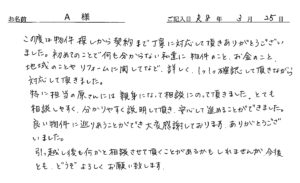 お名前 A 様 ご記入日 28年 3月 25日
この度は物件探しから契約まで丁寧に対応して頂きありがとうござい
ました。初めてのことで何も分からない私達に物件のこと、お金のこと、
地域のことやリフォームに関してなど、詳しく、1つ1つ確認して頂きながら
対応して頂きました。
特に担当の原さんには親身になって相談にのって頂きました。とても
相談しやすく、分かりやすく説明して頂き、安心して進めることができました。
良い物件に巡りあうことができ大変感謝しております。ありがとうござ
いました。
引っ越し後も何かと相談させて頂くことがあるかもしれませんが今後
とも、どうぞよろしくお願い致します。